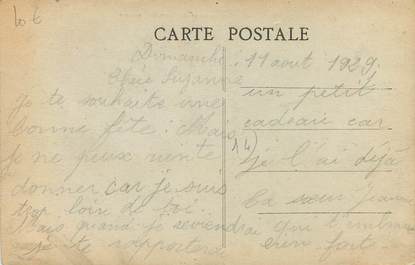 10 €
CARTE POSTALE
Dimanche : 11 aout 1929
Chère Suzanne
je te souhaite une
bonne fête : Mais
je ne peux rien te
donner car je suis
trop loin de toi..
Mais quand je reviendrai
je te rapporterai
un petit
cadeau car
je l'ai déjà
(14)
Ta sœur Jeanne
qui t'embrasse
bien fort